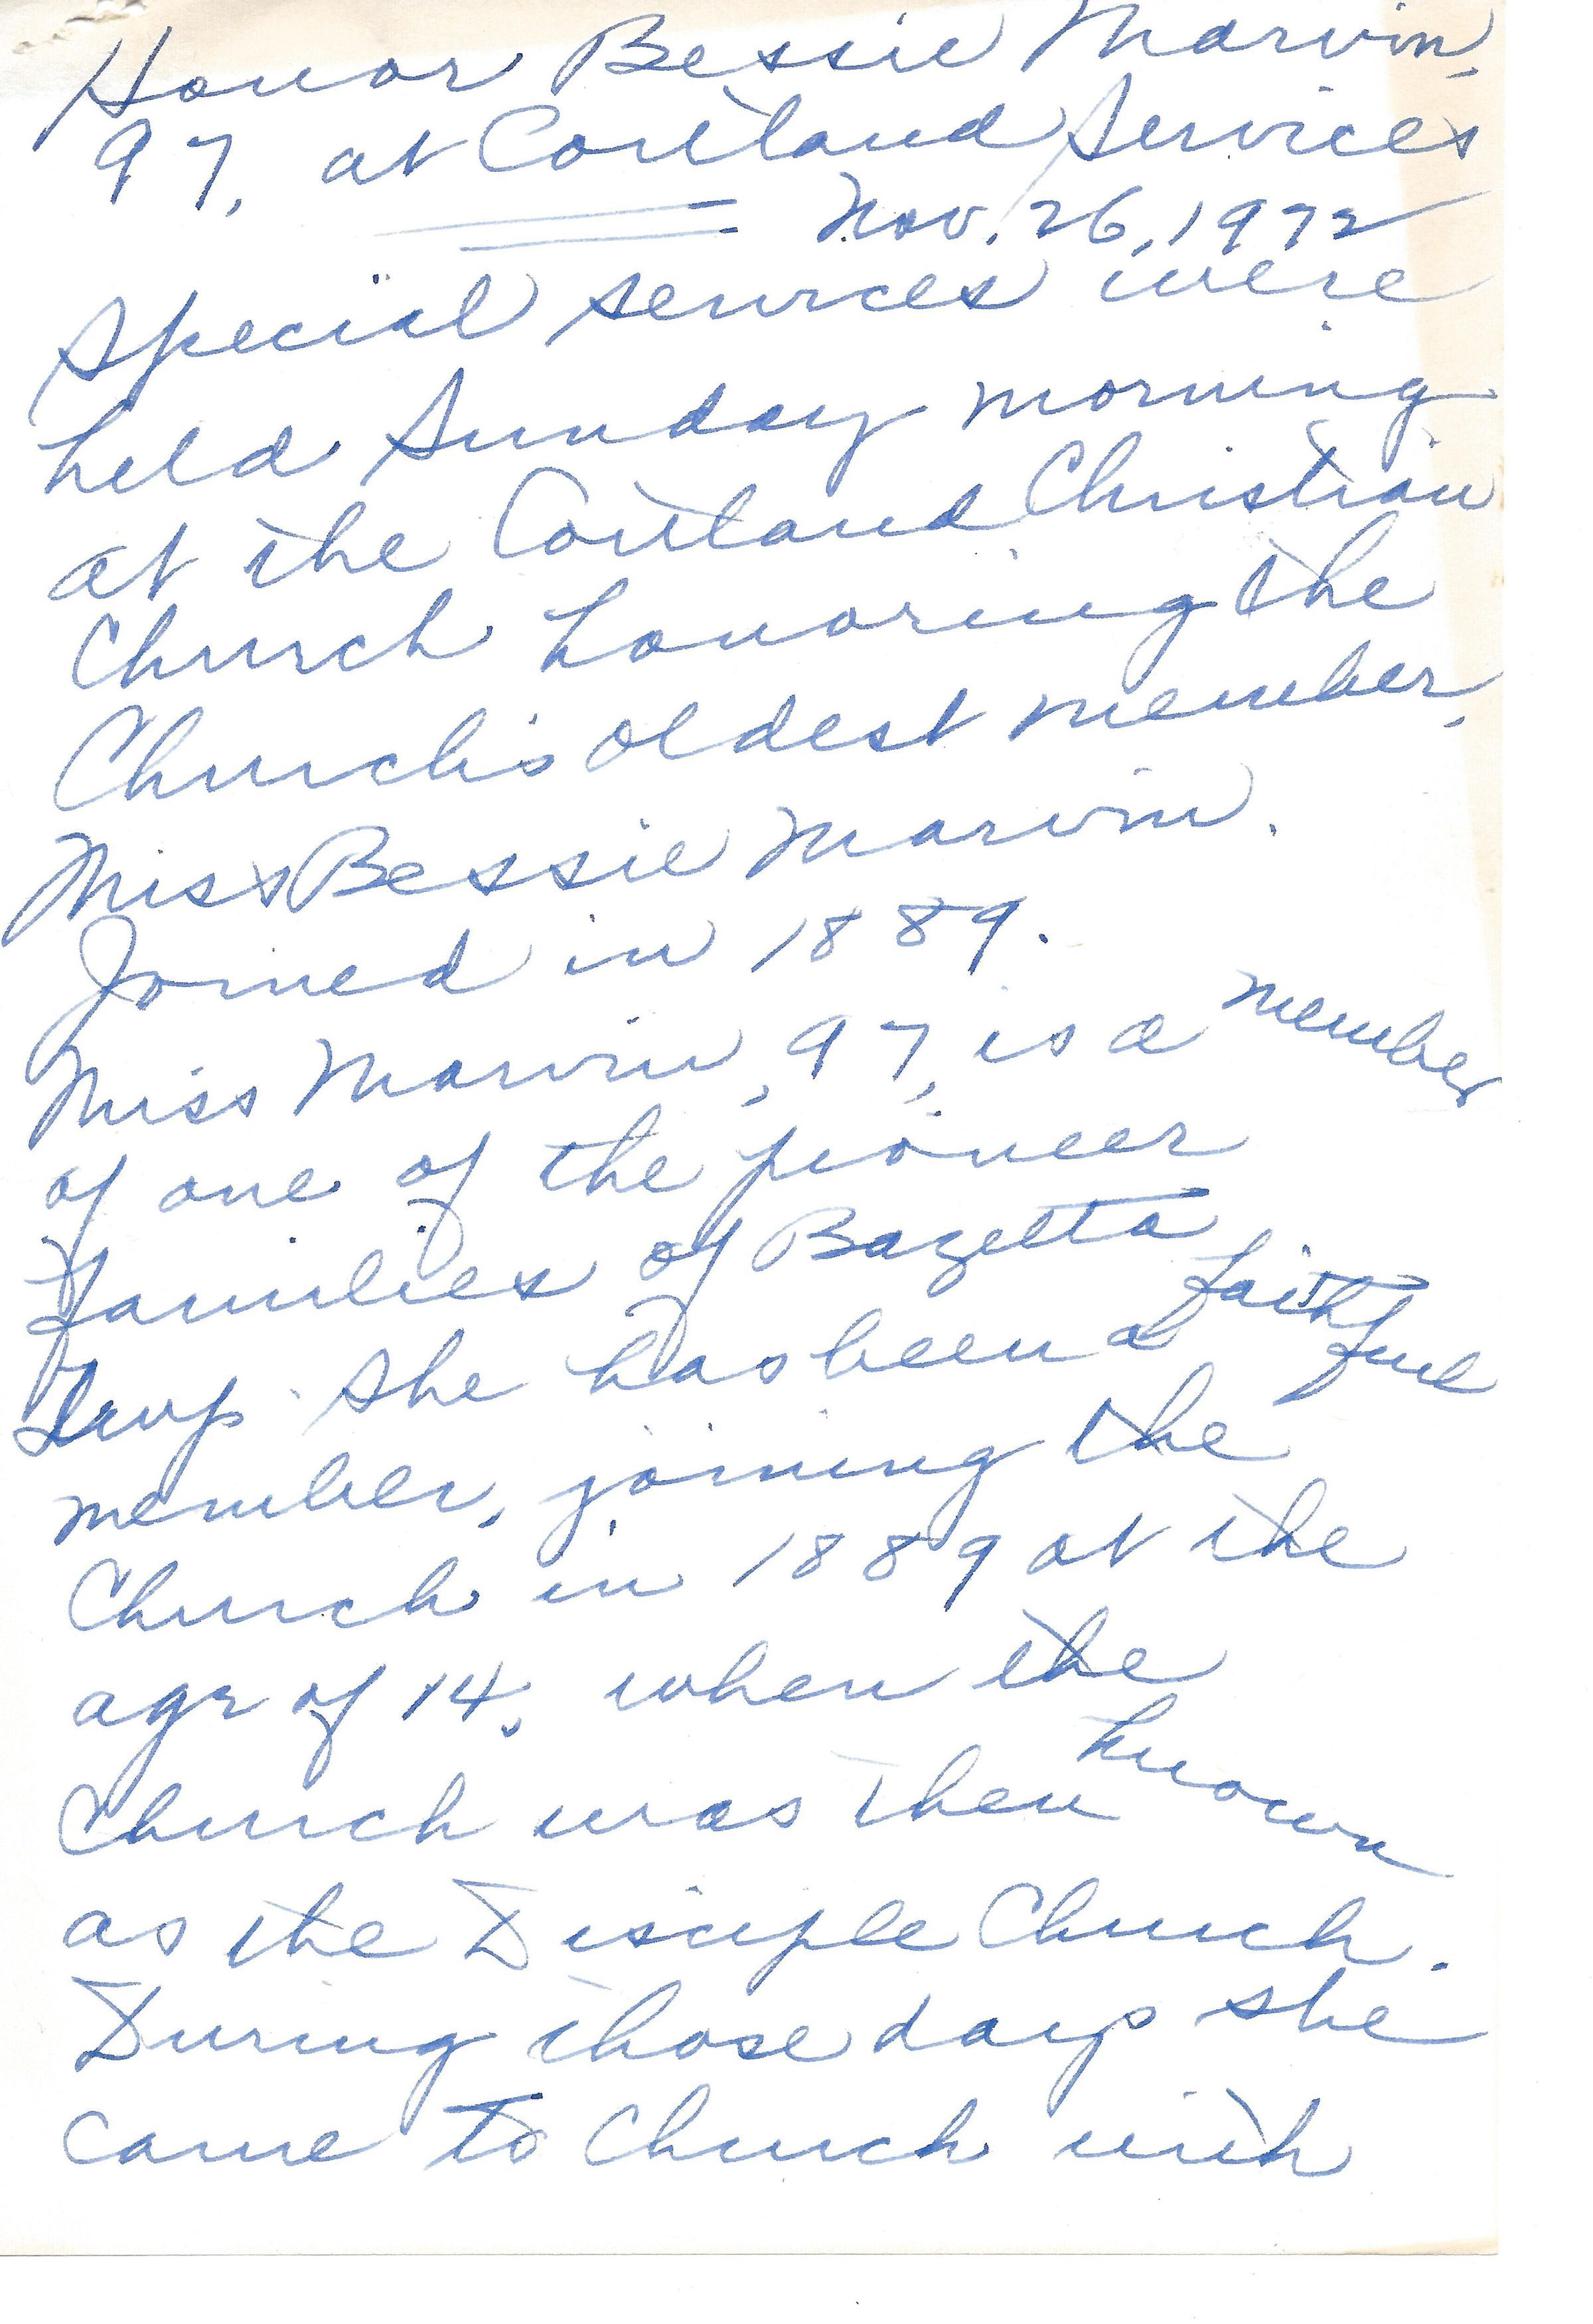 Honor Bessie Marvin,
97, at Cortland Services
Nov. 26, 1972
Special services were
held Sunday morning
at the Cortland Christian
Church honoring the
Church's oldest member,
Miss Bessie Marvin.
Joined in 1889.
Miss Marvin, 97, is a member
of one of the pioneer
families of Bazetta
Twp. She has been a faithful
member, joining the
Church in 1889 at the
age of 14, when the
Church was then known
as the Disciple Church.
During those days she
came to Church with